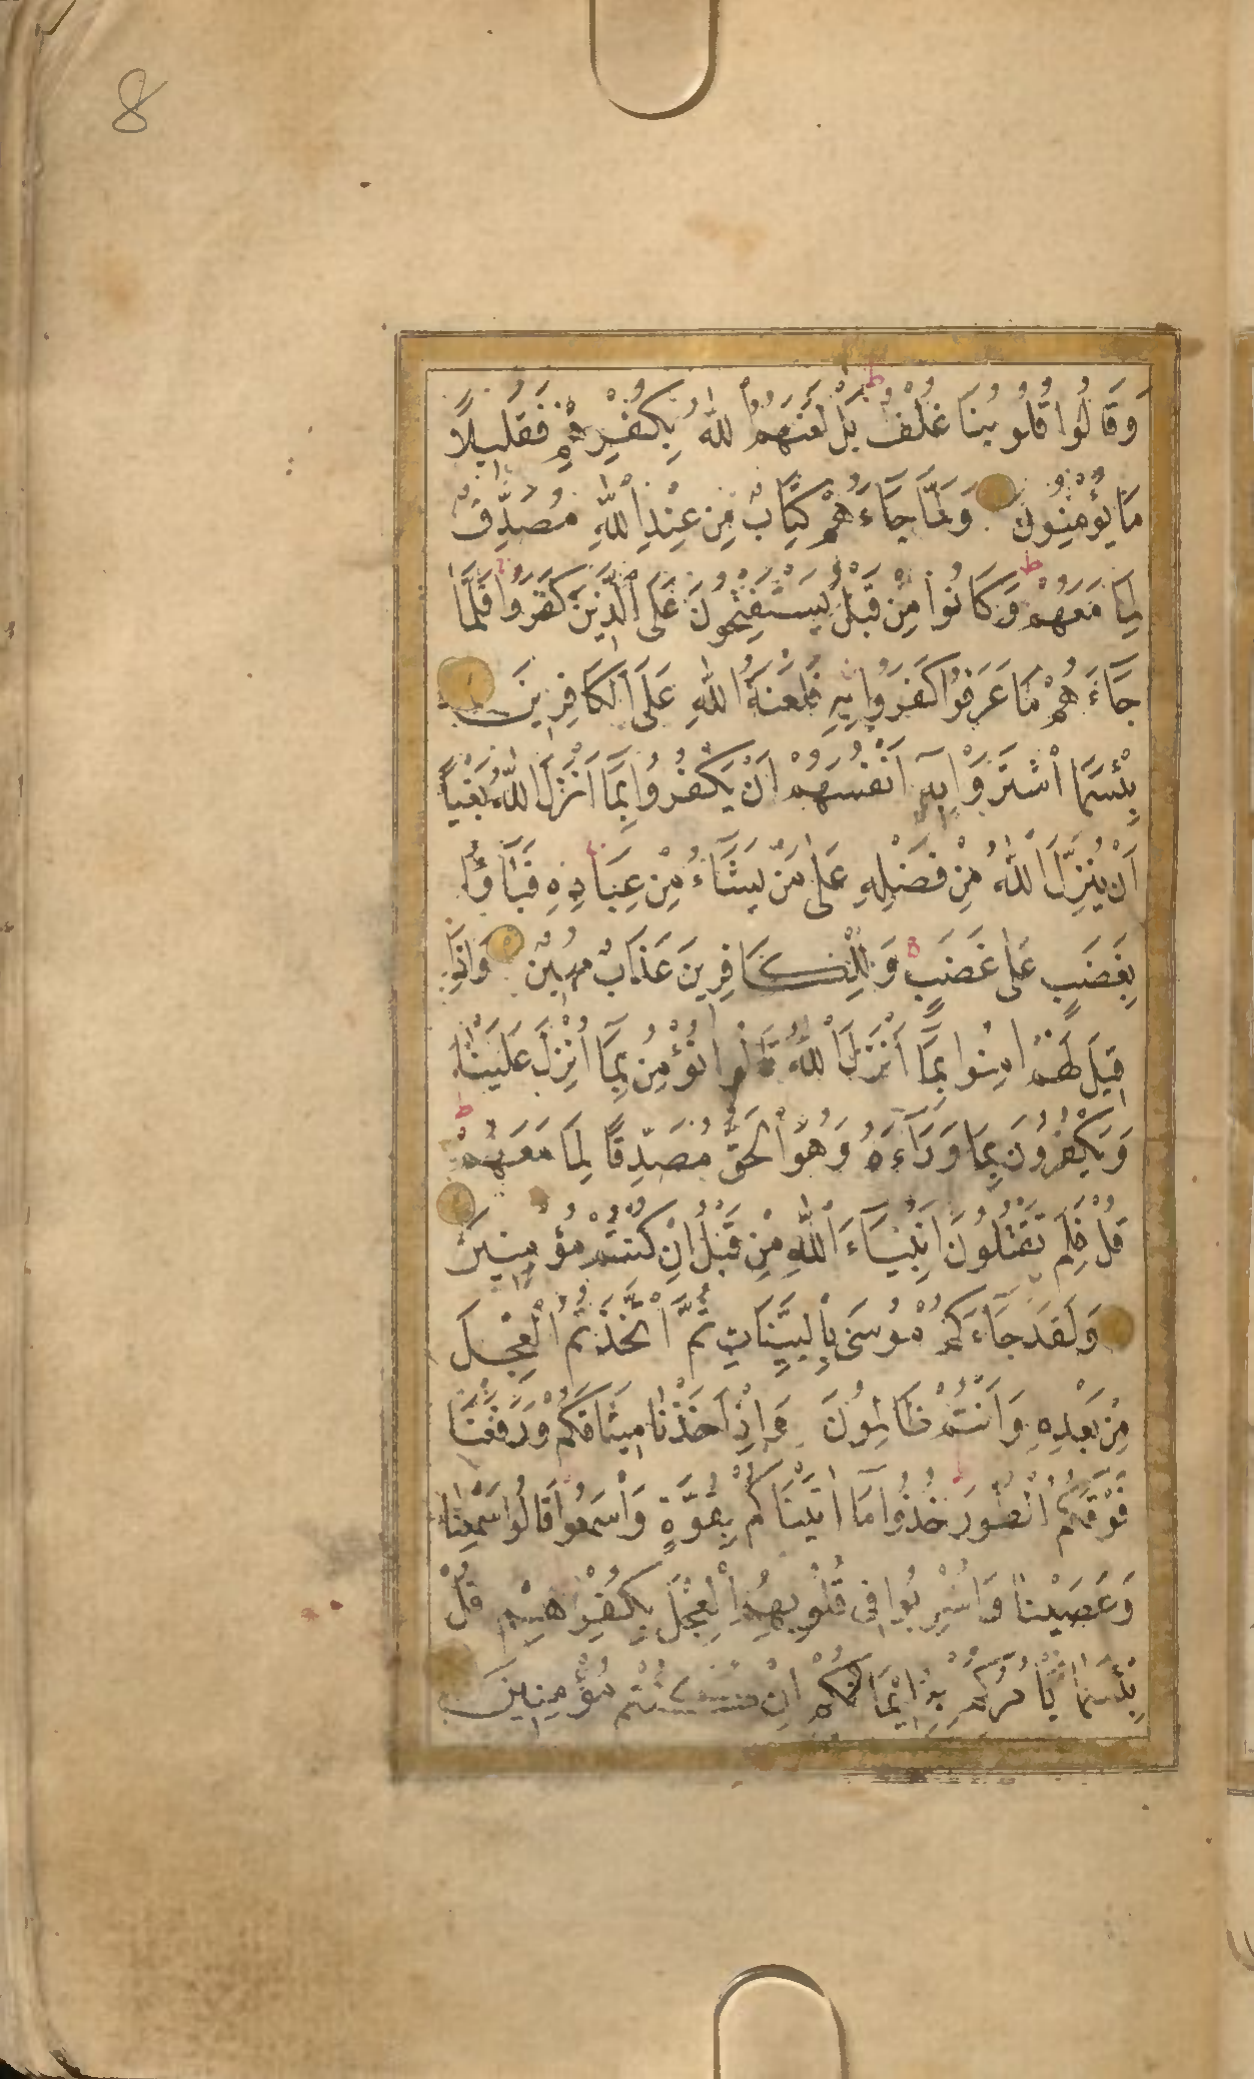 8
وَقَالُوا قُلُوبُنَا غُلْفٌ بَلْ لَعَنَهُمُ اللّٰهُ بِكُفْرِهِمْ فَقَلِيلًا
مَا يُؤْمِنُونَ وَلَمَّا جَاءَهُمْ كِتَابٌ مِنْ عِنْدِ اللّٰهِ مُصَدِّقٌ
لِمَا مَعَهُمْ وَكَانُوا مِنْ قَبْلُ يَسْتَفْتِحُونَ عَلَى الَّذِينَ كَفَرُوا فَلَمَّا
جَاءَهُمْ مَا عَرَفُوا كَفَرُوا بِهِ فَلَعْنَةُ اللّٰهِ عَلَى الْكَافِرِينَ
بِئْسَمَا اشْتَرَوْا بِهِ أَنْفُسَهُمْ أَنْ يَكْفُرُوا بِمَا أَنْزَلَ اللّٰهُ بَغْيًا
أَنْ يُنَزِّلَ اللّٰهُ مِنْ فَضْلِهِ عَلٰى مَنْ يَشَاءُ مِنْ عِبَادِهِ فَبَاؤُا
بِغَضَبٍ عَلٰى غَضَبٍ وَلِلْكَافِرِينَ عَذَابٌ مُهِينٌ وَإِذَا
قِيلَ لَهُمْ اٰمِنُوا بِمَا أَنْزَلَ اللّٰهُ قَالُوا نُؤْمِنُ بِمَا أُنْزِلَ عَلَيْنَا
وَيَكْفُرُونَ بِمَا وَرَاءَهُ وَهُوَ الْحَقُّ مُصَدِّقًا لِمَا مَعَهُمْ
قُلْ فَلِمَ تَقْتُلُونَ أَنْبِيَاءَ اللّٰهِ مِنْ قَبْلُ إِنْ كُنْتُمْ مُؤْمِنِينَ
وَلَقَدْ جَاءَكُمْ مُوسَى بِالْبَيِّنَاتِ ثُمَّ اتَّخَذْتُمُ الْعِجْلَ
مِنْ بَعْدِهِ وَأَنْتُمْ ظَالِمُونَ وَإِذْ أَخَذْنَا مِيثَاقَكُمْ وَرَفَعْنَا
فَوْقَكُمُ الطُّورَ خُذُوا مَا اٰتَيْنَاكُمْ بِقُوَّةٍ وَاسْمَعُوا قَالُوا سَمِعْنَا
وَعَصَيْنَا وَأُشْرِبُوا فِي قُلُوبِهِمُ الْعِجْلَ بِكُفْرِهِمْ قُلْ
بِئْسَمَا يَأْمُرُكُمْ بِهِ إِيمَانُكُمْ إِنْ كُنْتُمْ مُؤْمِنِينَ